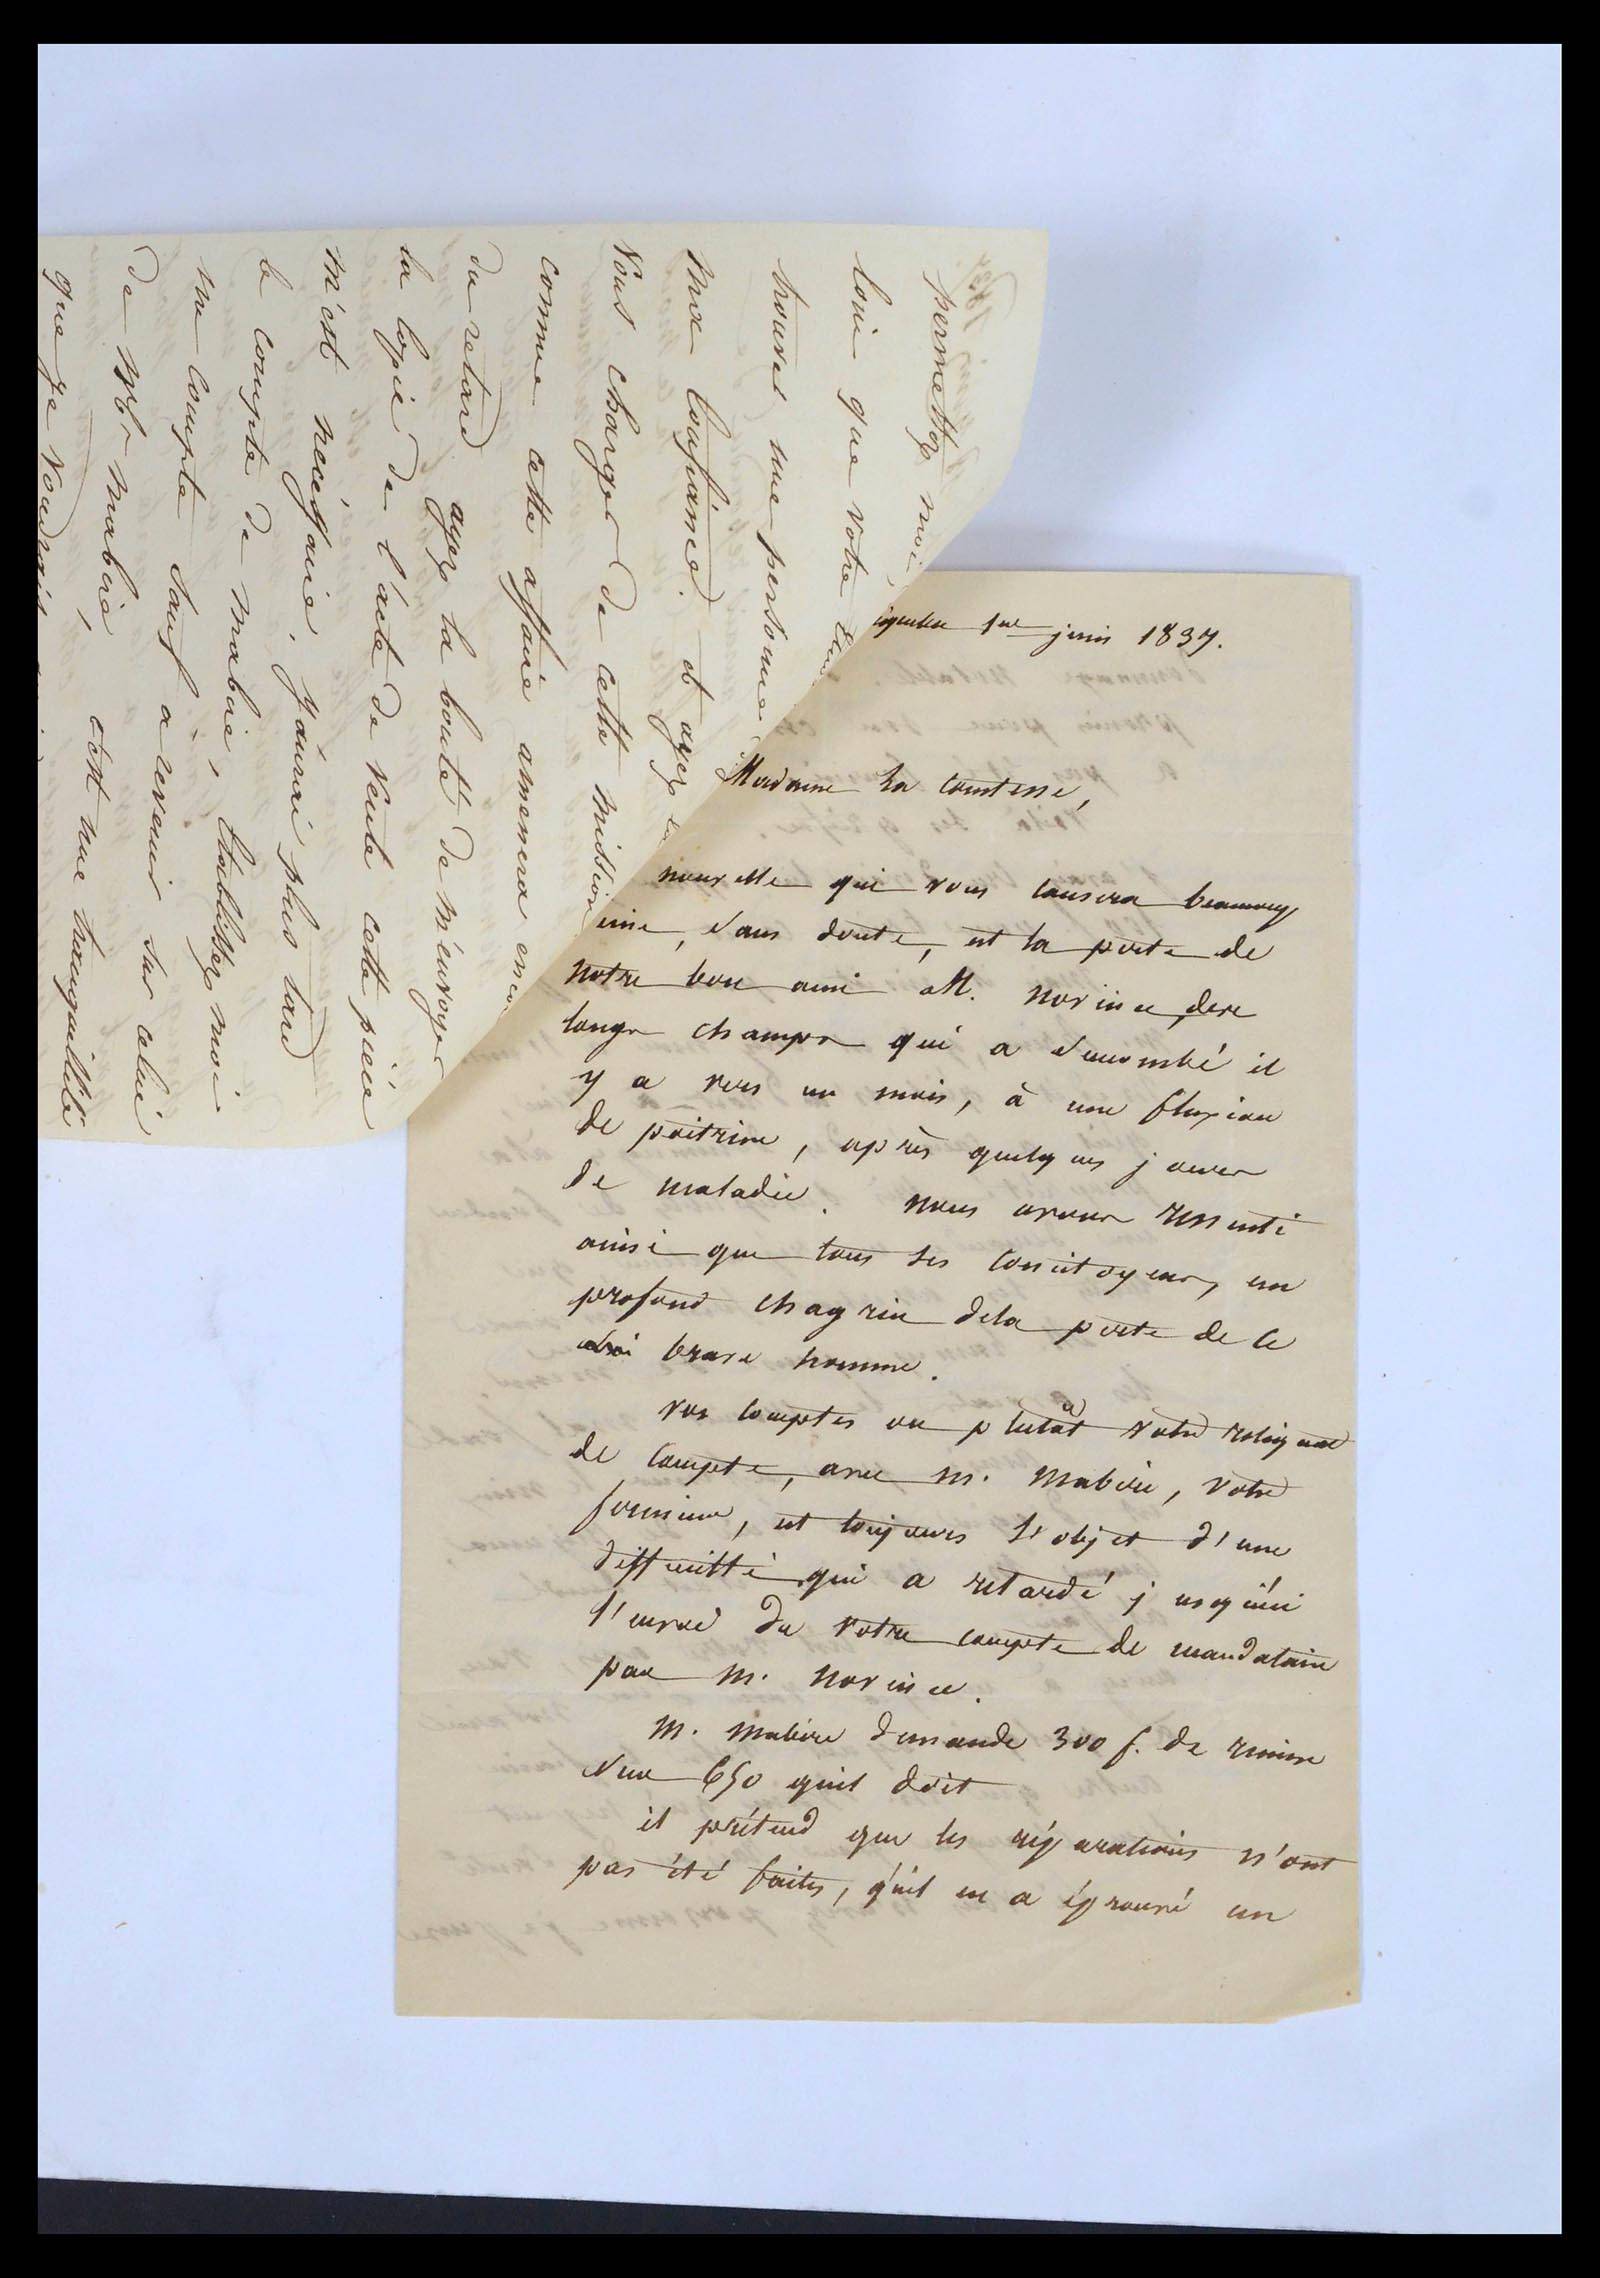 permettez moi
loin que votre
trouver une personne
ma confiance et ayez la
vous charger de cette mission
comme cette affaire amenera enco
du retard ayez la bonté de m'envoyer
la copie de l'acte de vente cette pièce
m'est nécessaire. J'aurai plus tard
le compte de mabire, établissez moi
un compte sauf a revenir sur celui
de Mr mabire, c'est une tranquillité
que je voudrais
1er juin 1837.
Madame la Comtesse,
nouvelle qui vous causera beaucoup
eine, sans doute, est la perte de
notre bon ami M. Norince
longs champs qui a succombé il
y a vers un mois, à une fluxion
de poitrine, après quelques jours
de maladie. nous avons ressenti
ainsi que tous ses concitoyens, un
profond chagrin dela perte de ce
vrai brave homme.
vos comptes ou plutôt votre
de compte, avec M. Mabire, votre
fermier, est toujours l'objet d'une
difficulté qui a retardé jusqu'ici
l'envoi du votre compte de mandataire
par M. Norince.
M. Mabire demande 300 f. de remise
sur 650 quil doit
il prétend que les réparations n'ont
pas été faites, qu'il en a éprouvé un